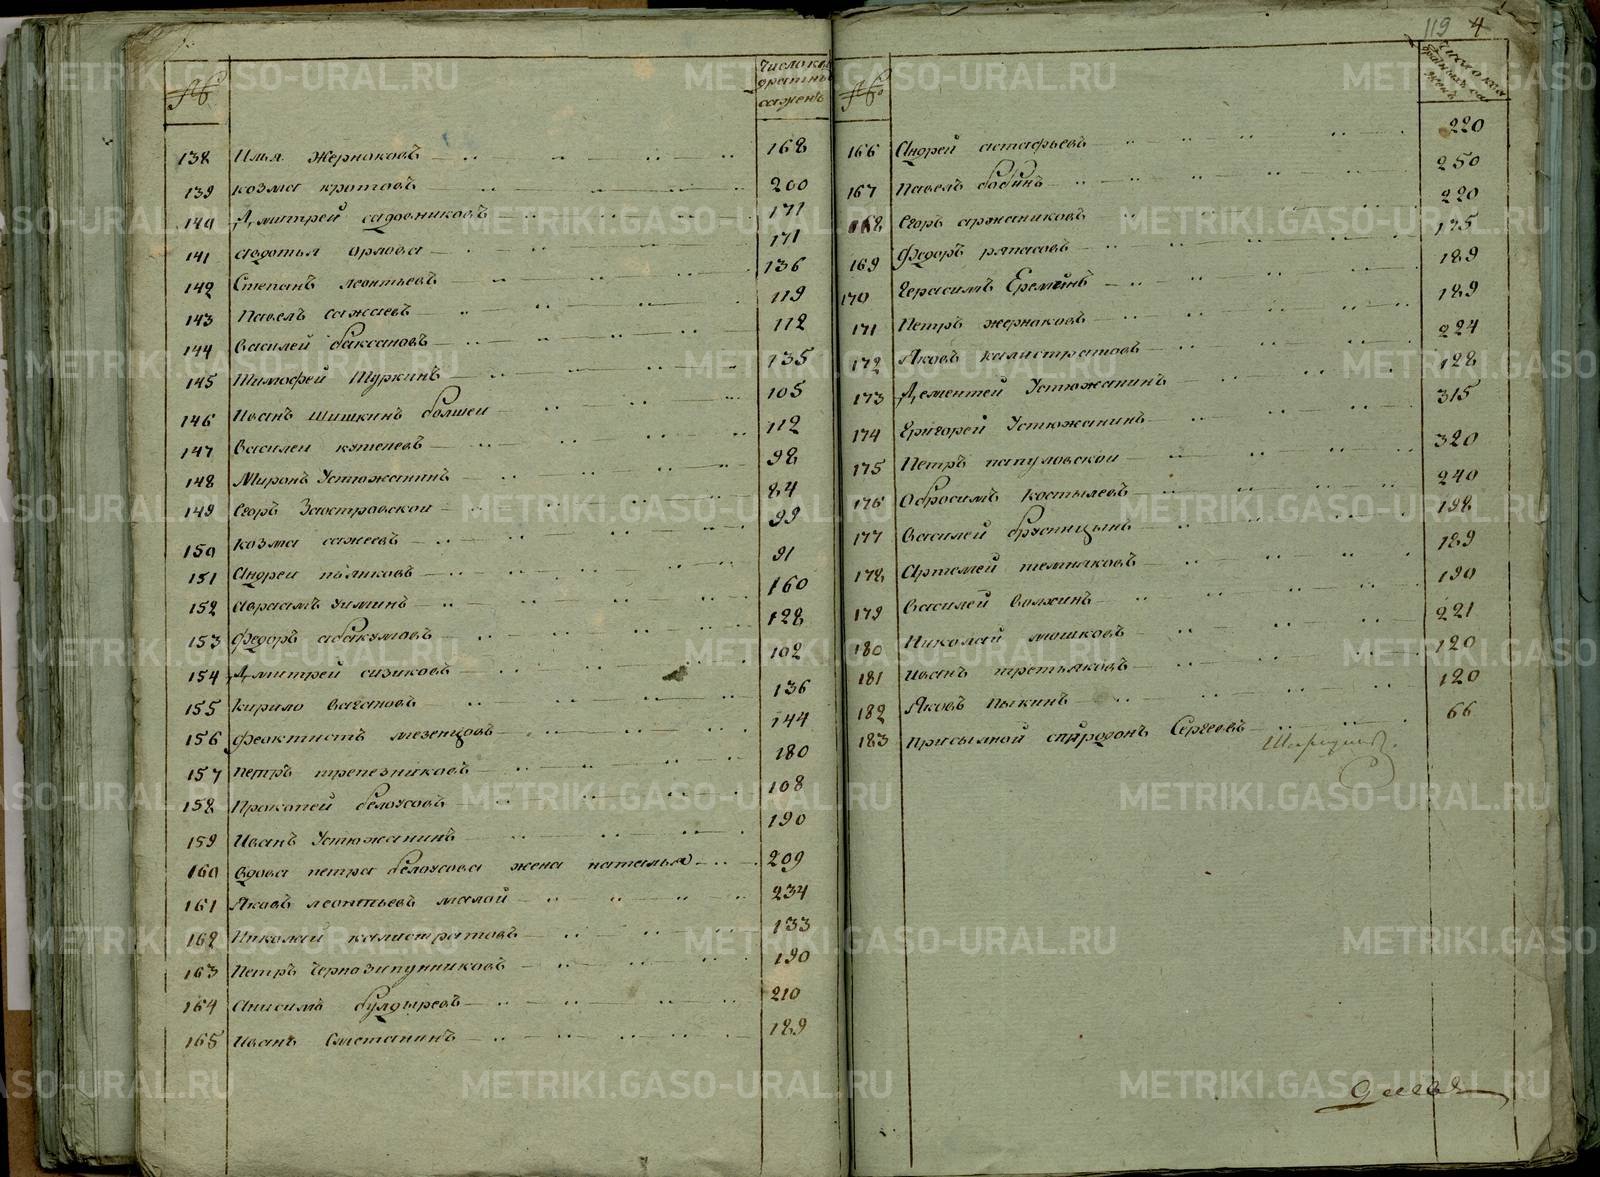 №
Число квадратныхъ саженъ
138 Илья Жернаковъ 168
139 Козма кротовъ 200
140 Дмитрей садовниковъ 171
141 авдотья орлова 171
142 Степанъ леонтьевъ 136
143 Павелъ сажаевъ 119
144 Василей баксановъ 112
145 Тимофей Шуркинъ 135
146 Иванъ шишкинъ болшей 105
147 Василеи кутеневъ 112
148 Миронъ Устюжанинъ 98
149 Егоръ Заостровской 84
150 Козма сажеевъ 99
151 Андреи поляковъ 91
152 аврамъ зиминъ 160
153 Федоръ абакумовъ 128
154 Дмитрей сизиковъ 102
155 Кирило вагановъ 136
156 феоктистъ мезенцовъ 144
157 Петръ трапезниковъ 180
158 Прокопей белоусовъ 108
159 Иванъ Устюжанинъ 190
160 вдова петра белоусова жена наталья 209
161 Яковъ леонтьевъ малой 234
162 Николай калистратовъ 133
163 Петръ Чернозипунниковъ 190
164 Анисимъ булдыревъ 210
165 Иванъ Сметанинъ 189
119 4
№
Число квадратныхъ саженъ
166 Андрей астафьевъ 220
167 Павелъ бабинъ 250
168 Егоръ аржаниковъ 220
169 Федоръ ряпасовъ 175
170 Герасимъ Еремеинъ 189
171 Петръ жернаковъ 189
172 Яковъ калистратовъ 224
173 Дементей Устюжанинъ 128
174 Григорей Устюжанинъ 315
175 Петръ папуловской 320
176 Обросимъ костылевъ 240
177 Василей брусницынъ 198
178 Артемей темняковъ 189
179 Василей волжинъ 190
180 Николай мошковъ 221
181 Иванъ третьяковъ 120
182 Яковъ пыкинъ 120
183 Присылной спиридонъ Сергеевъ 66
METRIKI.GASO-URAL.RU